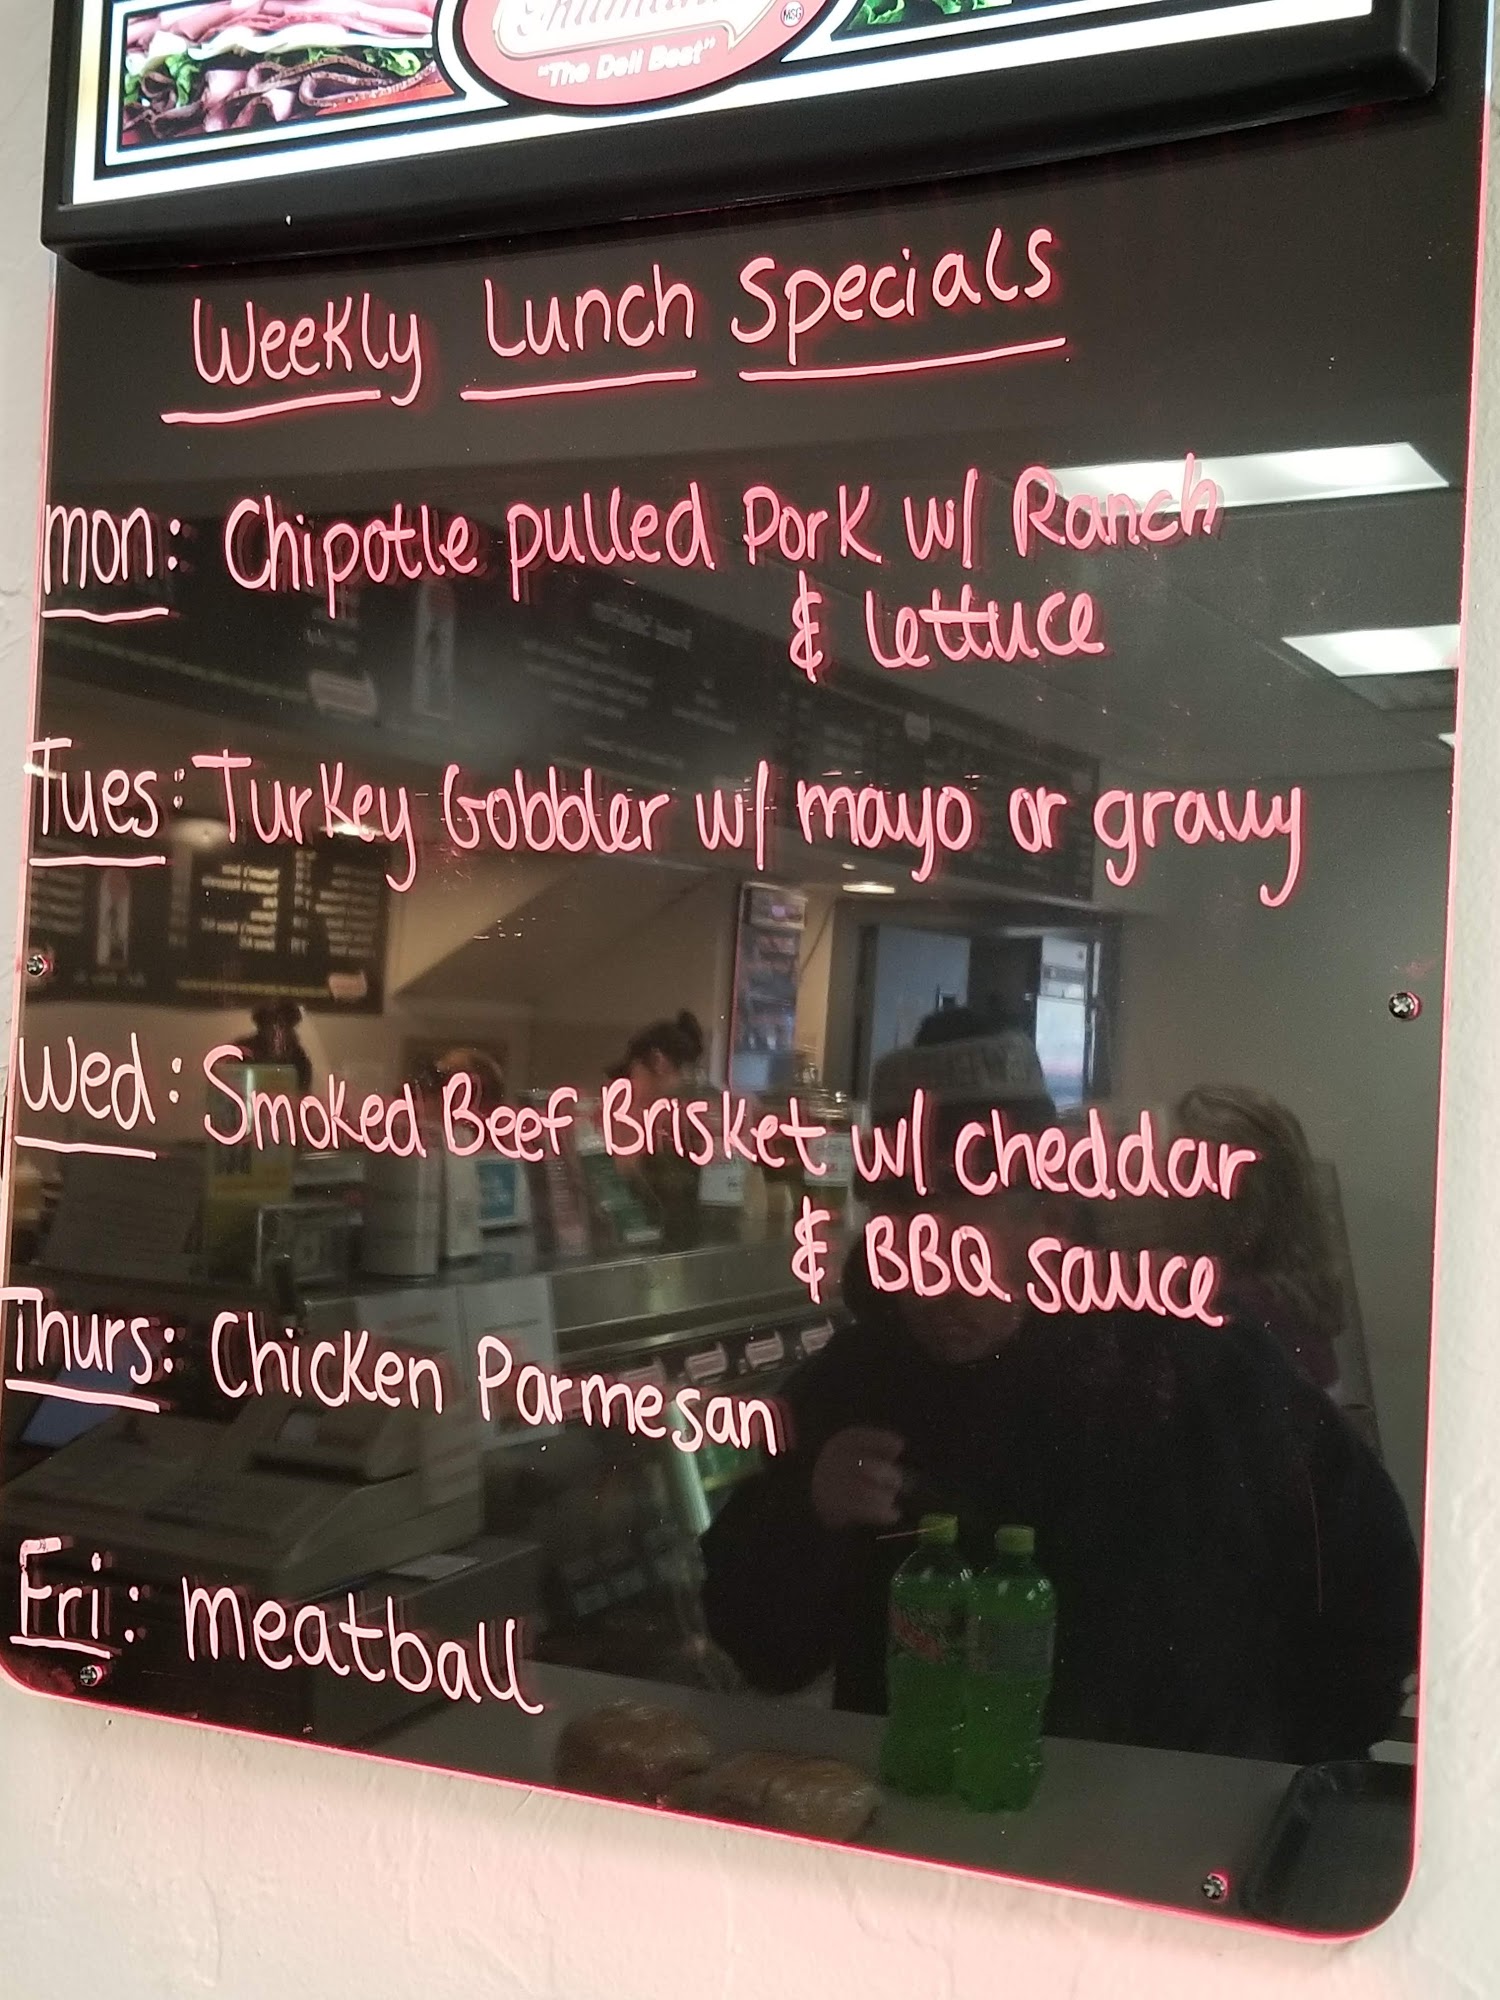 "The Deli Best"
Weekly Lunch Specials
Mon: Chipotle pulled Pork w/ Ranch
& lettuce
Tues: Turkey Gobbler w/ mayo or gravy
Wed: Smoked Beef Brisket w/ cheddar
& BBQ sauce
Thurs: Chicken Parmesan
Fri: meatball